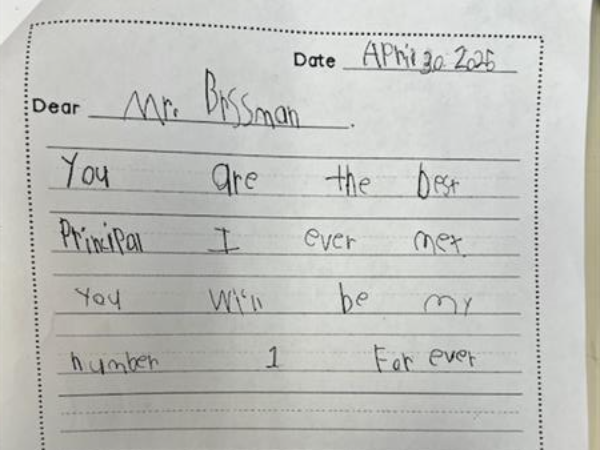 Date April 30 2025
Dear Mr. Brssman.
You are the best
Principal I ever met.
You will be my
number 1 For ever